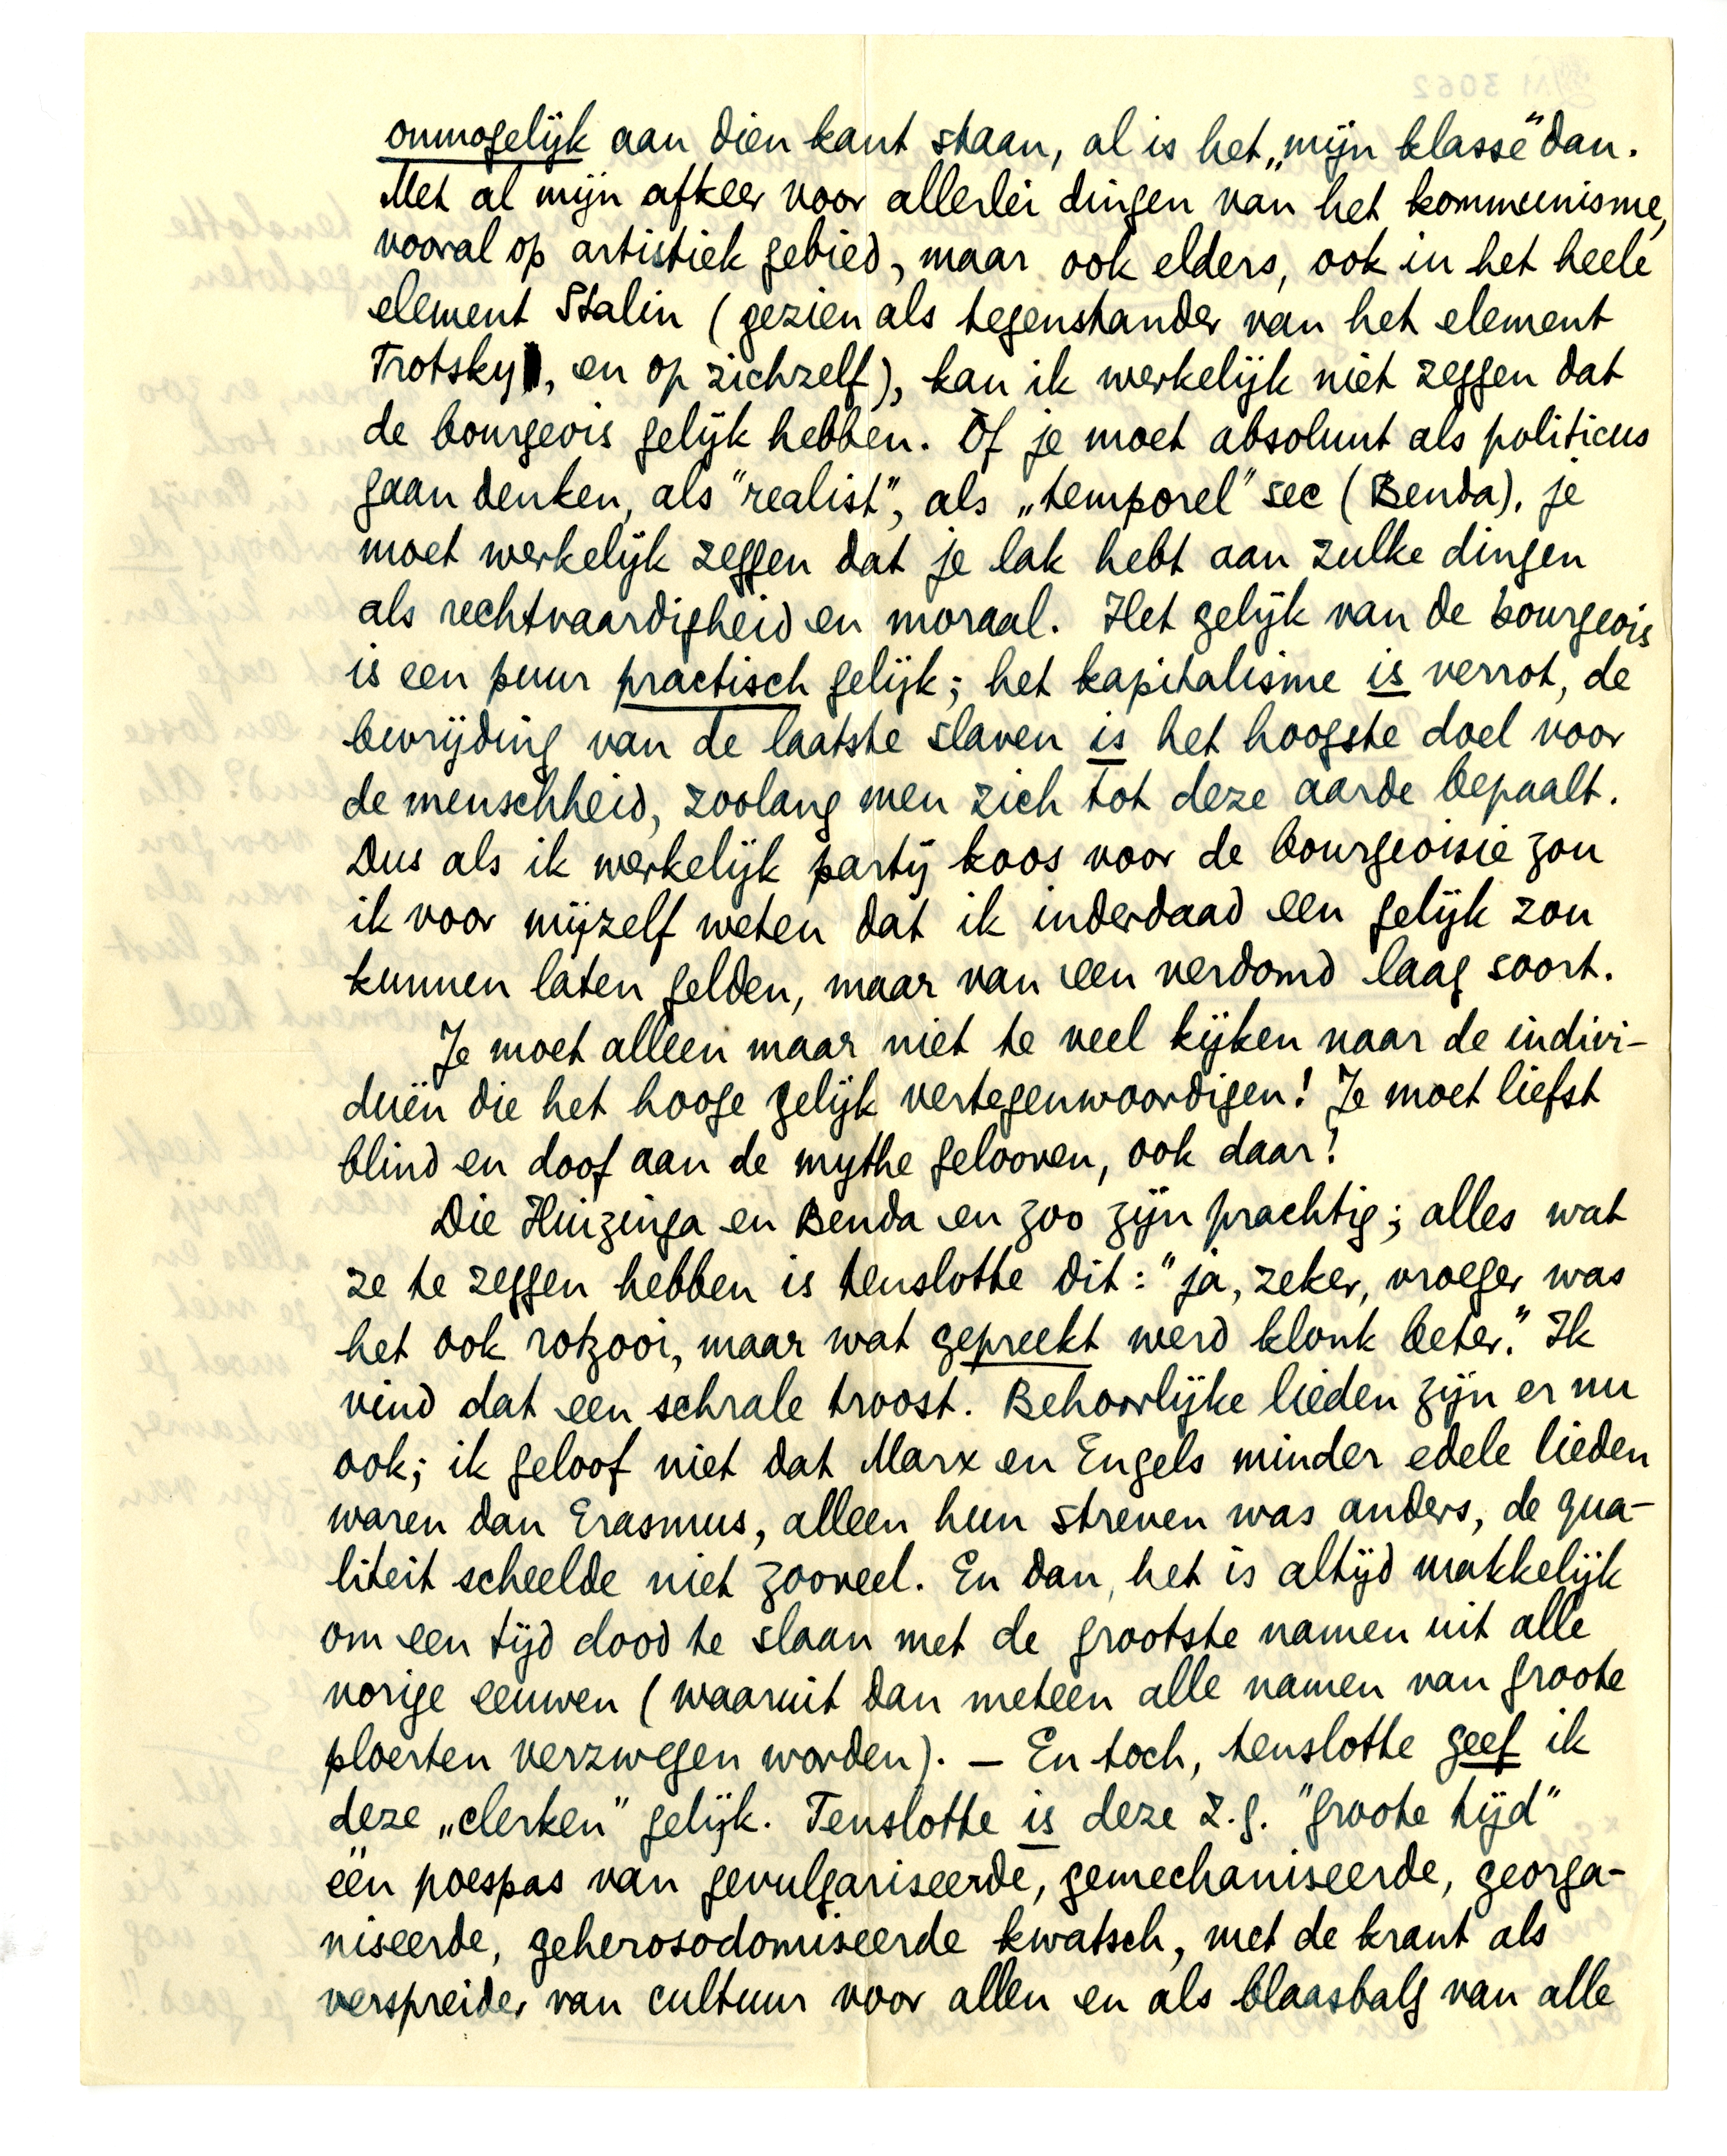 onmogelijk aan dien kant staan, al is het „mijn klasse" dan.
Met al mijn afkeer voor allerlei dingen van het kommunisme,
vooral op artistiek gebied, maar ook elders, ook in het heele
element Stalin (gezien als tegenstander van het element
Trotsky, en op zichzelf), kan ik werkelijk niet zeggen dat
de bourgeois gelijk hebben. Of je moet absoluut als politicus
gaan denken, als "realist", als „temporel" sec (Benda), je
moet werkelijk zeggen dat je lak hebt aan zulke dingen
als rechtvaardigheid en moraal. Het gelijk van de bourgeois
is een puur practisch gelijk; het kapitalisme is verrot, de
bevrijding van de laatste slaven is het hoogste doel voor
de menschheid, zoolang men zich tot deze aarde bepaalt.
Dus als ik werkelijk partij koos voor de bourgeoisie zou
ik voor mijzelf weten dat ik inderdaad een gelijk zou
kunnen laten gelden, maar van een verdomd laag soort.
Je moet alleen maar niet te veel kijken naar de indivi-
duën die het hooge gelijk vertegenwoordigen! Je moet liefst
blind en doof aan de mythe gelooven, ook daar!
Die Huizinga en Benda en zoo zijn prachtig; alles wat
ze te zeggen hebben is tenslotte dit: "ja, zeker, vroeger was
het ook rotzooi, maar wat gepreekt werd klonk beter." Ik
vind dat een schrale troost. Behoorlijke lieden zijn er nu
ook; ik geloof niet dat Marx en Engels minder edele lieden
waren dan Erasmus, alleen hun streven was anders, de qua-
liteit scheelde niet zooveel. En dan, het is altijd makkelijk
om een tijd dood te slaan met de grootste namen uit alle
vorige eeuwen (waaruit dan meteen alle namen van groote
ploerten verzwegen worden). — En toch, tenslotte geef ik
deze „clerken" gelijk. Tenslotte is deze z.g. "groote tijd"
één poespas van gevulgariseerde, gemechaniseerde, georga-
niseerde, geherosodomiseerde kwatsch, met de krant als
verspreider van cultuur voor allen en als blaasbalg van alle